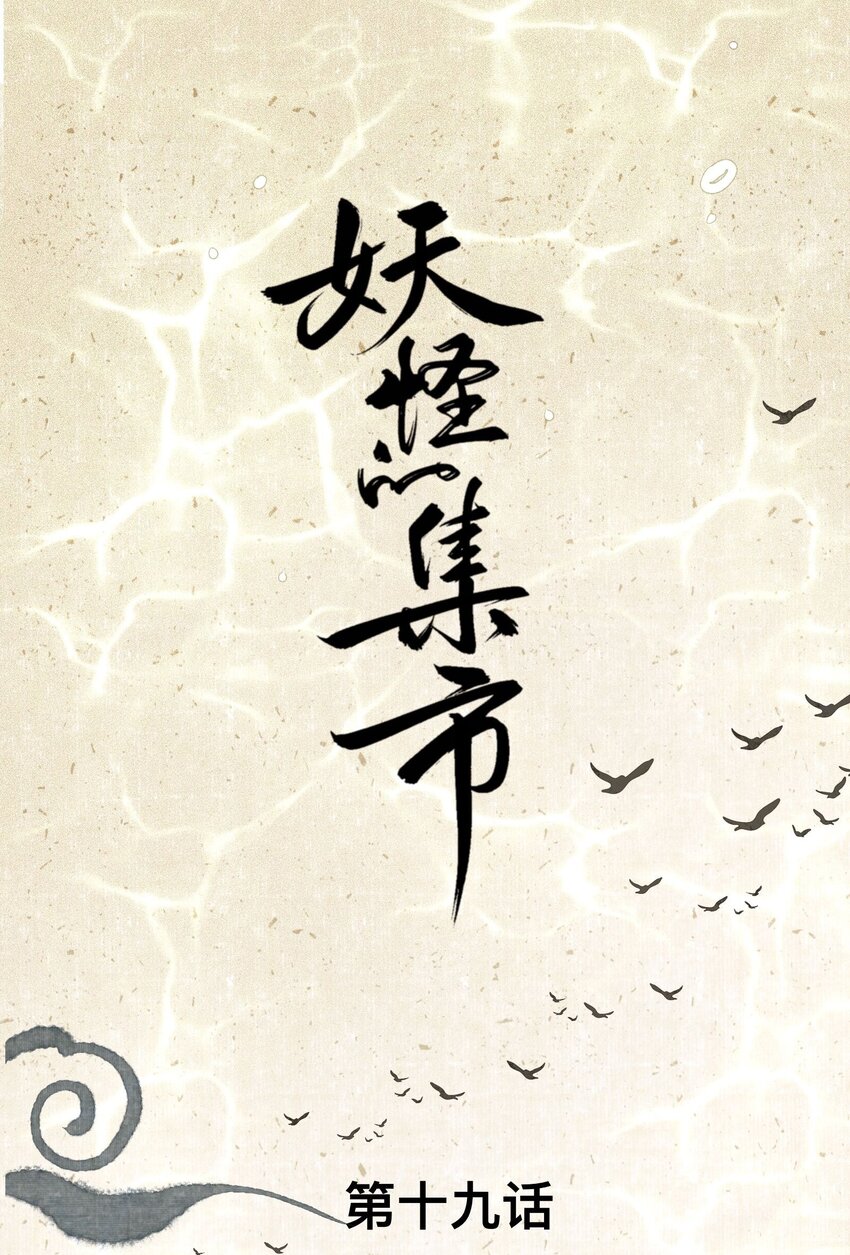 妖怪的集市
第十九话